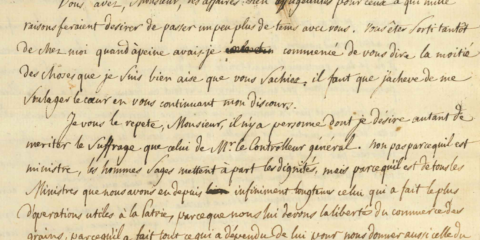 Vous, avez, Monsieur, les affaires bien affligeantes pour ceux à qui mille
raisons feraient desirer de passer un peu plus de tems avec vous. Vous êtes sorti tantôt
de chez moi quand àpeine avais je commencé de vous dire la moitié
des choses que je suis bien aise que vous sachiez, il faut que j'acheve de me
soulager le cœur en vous continuant mon discours.
Je vous le repete, Monsieur, il n'y a personne dont je désire autant de
meriter le suffrage que celui de Mr. le Controlleur général. non pas parcequ'il est
ministre, les hommes sages mettent à part les dignités, mais parcequ'il est de tous les
Ministres que nous avons eu depuis infiniment longtems celui qui a fait le plus
d'operations utiles à la Patrie, parceque nous lui devons la liberté du commerce des
grains, parcequ'il a fait tout ce qui a dépendu de lui pour nous donner aussi celle du